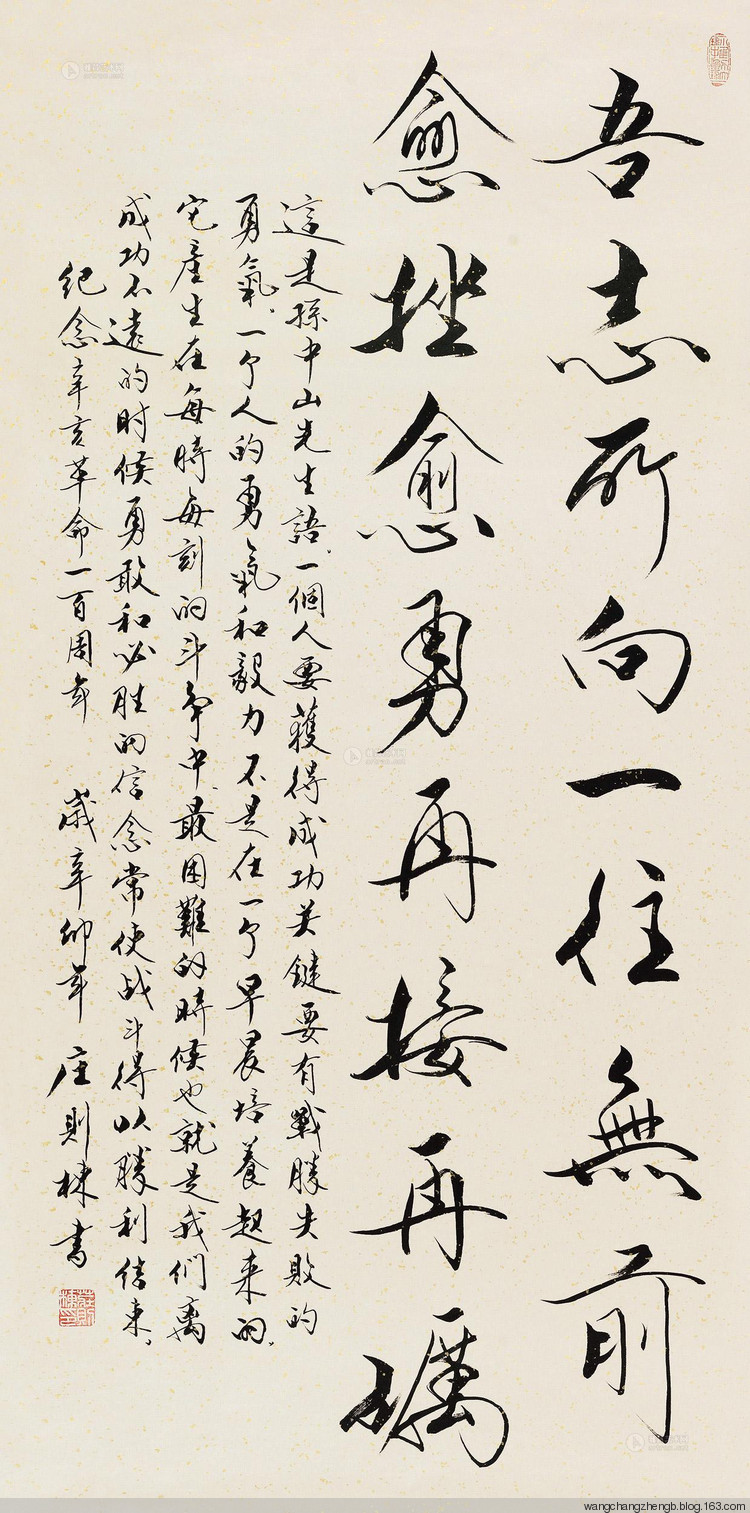 吾志所向一往無前
愈挫愈勇再接再礪
這是孫中山先生語.一個人要獲得成功关鍵要有戰勝失敗的
勇氣.一个人的勇氣和毅力不是在一个早晨培養起来的.
它產生在每時每刻的斗争中.最困難的時候也就是我们离
成功不遠的时候勇敢和必胜的信念常使战斗得以勝利结束.
纪念辛亥革命一百周年 歲辛卯年 庄則棟书
wangchangzhengb.blog.163.com